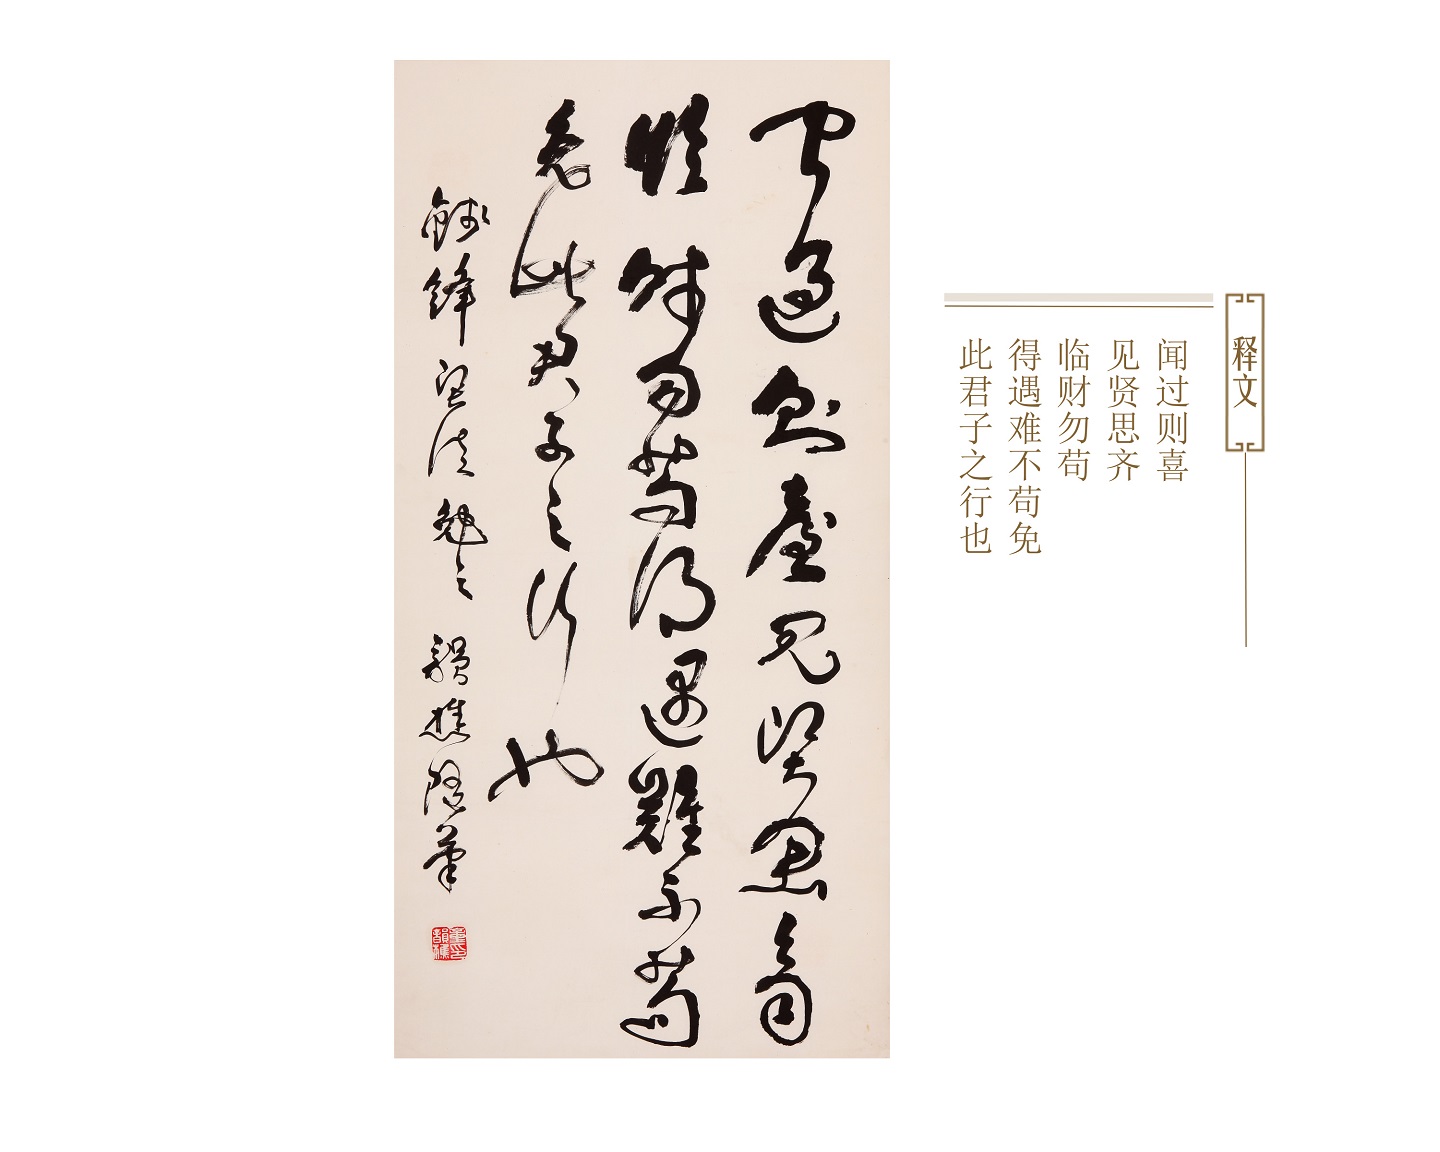 释文
闻过则喜
见贤思齐
临财勿苟
得遇难不苟免
此君子之行也
闻过则喜见贤思齐
临财勿苟得遇难不苟
免此君子之行也
勉之 韵樵随笔